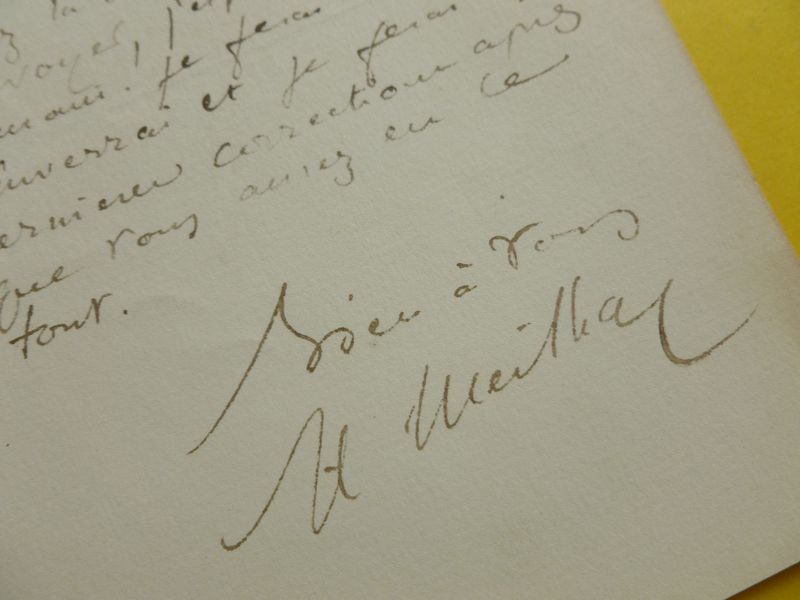 la
voyer, j'ai
. je ferai
enverrai et je ferai
dernieres corrections après
que vous aurez eu le
tout.
Bien à vous
H Meilhac